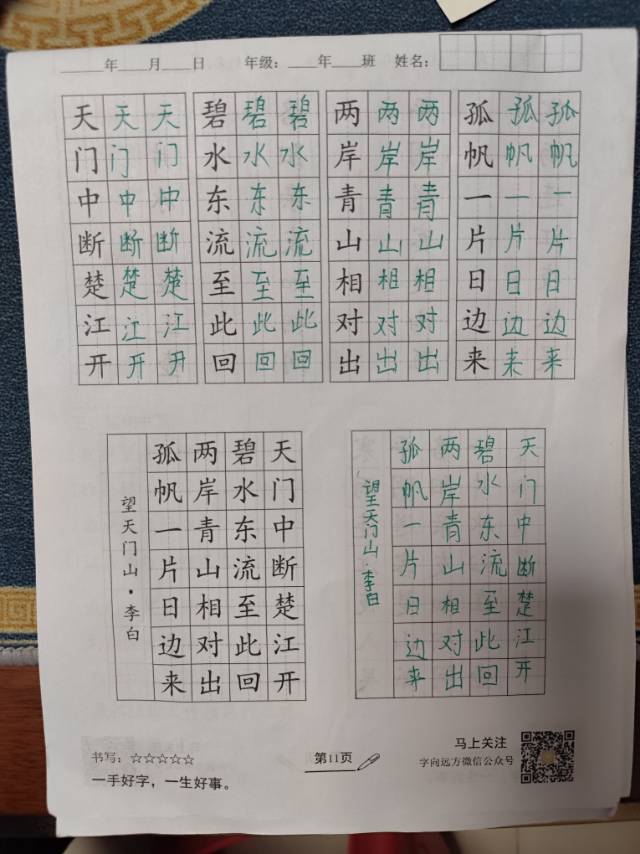 ____年____月____日 年级：____年____班 姓名：
天天天 碧碧碧 两两两 孤孤孤
门门门 水水水 岸岸岸 帆帆帆
中中中 东东东 青青青 一一一
断断断 流流流 山山山 片片片
楚楚楚 至至至 相相相 日日日
江江江 此此此 对对对 边边边
开开开 回回回 出出出 来来来
天门中断楚江开
碧水东流至此回
两岸青山相对出
孤帆一片日边来
望天门山·李白
天门中断楚江开
碧水东流至此回
两岸青山相对出
孤帆一片日边来
望天门山·李白
书写：☆☆☆☆☆
一手好字，一生好事。
第11页
马上关注
字向远方微信公众号